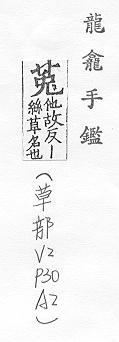 龍龕手鑑
莵他故反丨
絲草名也
(草部
V2
P30
A2)